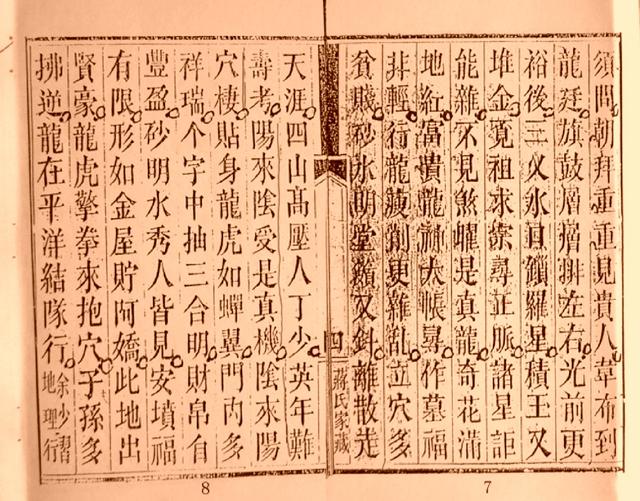 須問朝拜重重見貴人韋布到
龍廷旗鼓層層排左右光前更
裕後三义水口鎖羅星積玉又
堆金覓祖求宗尋正脈諸星詎
能雜不見煞曜是真龍奇花滿
地紅富貴龍神大帳尋作墓福
非輕行龍瘦削更雜亂立穴多
貧賤砂水明堂鎖又斜離散走
四
蔣氏家藏
天涯四山高壓人丁少英年難
壽考陽來陰受是真機陰來陽
穴棲貼身龍虎如蟬翼門內多
祥瑞个字中抽三合明財帛自
豐盈砂明水秀人皆見安墳福
有限形如金屋貯阿嬌此地出
賢豪龍虎擎拳來抱穴子孫多
拂逆龍在平洋結隊行
余少摺
地理行
7
8